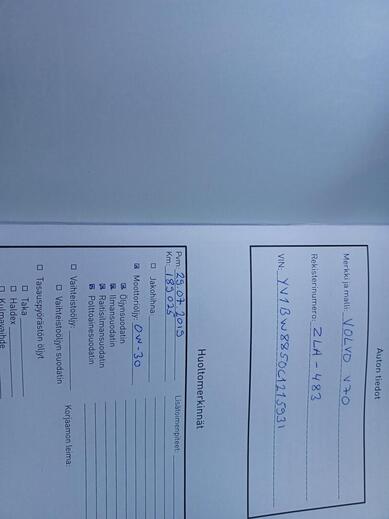 Auton tiedot
Merkki ja malli: VOLVO V70
Rekisterinumero: ZLA-483
VIN: YV1BW8850C1215931
Huoltomerkinnät
Pvm: 29.07.2019
Km: 189026
Lisätoimenpiteet:
Jakohihna:
Moottoriöljy: 0W-30
Öljynsuodatin
Ilmansuodatin
Raitisilmansuodatin
Polttoainesuodatin
Vaihteistoöljy:
Vaihteistoöljyn suodatin
Korjaamon leima:
Tasauspyörästön öljyt
Taka
Haldex
Kulmavaihde